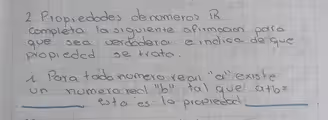 2 Propiedades de numeros ℝ
Completa la siguiente afirmacion para
que sea verdadera e indica de que
propiedad se trata.
1 Para todo numero real "a" existe
un numero real "b" tal que a+b=
____ esta es la propiedad ____